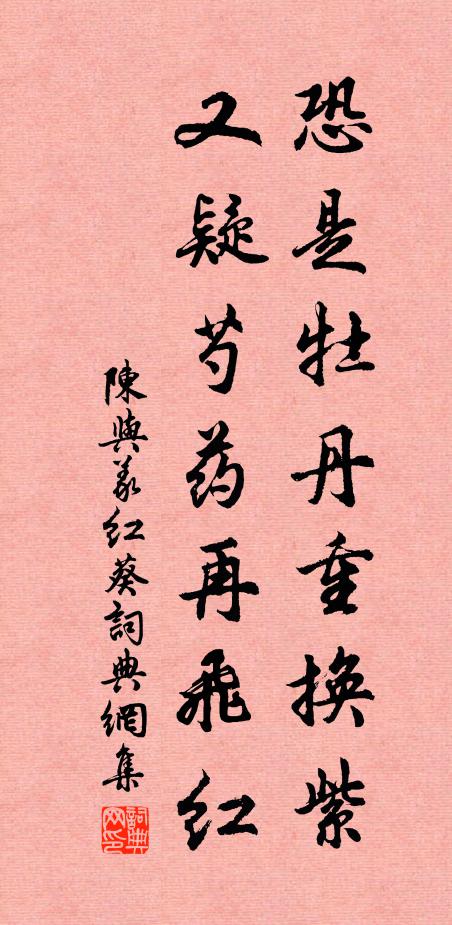 恐是牡丹重换紫
又疑芍药再飛红
陳與義红葵詞典網集
詞典网印